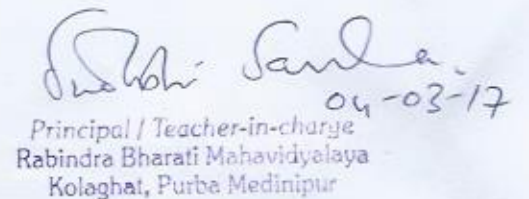 04-03-17
Principal / Teacher-in-charge
Rabindra Bharati Mahavidyalaya
Kolaghat, Purba Medinipur